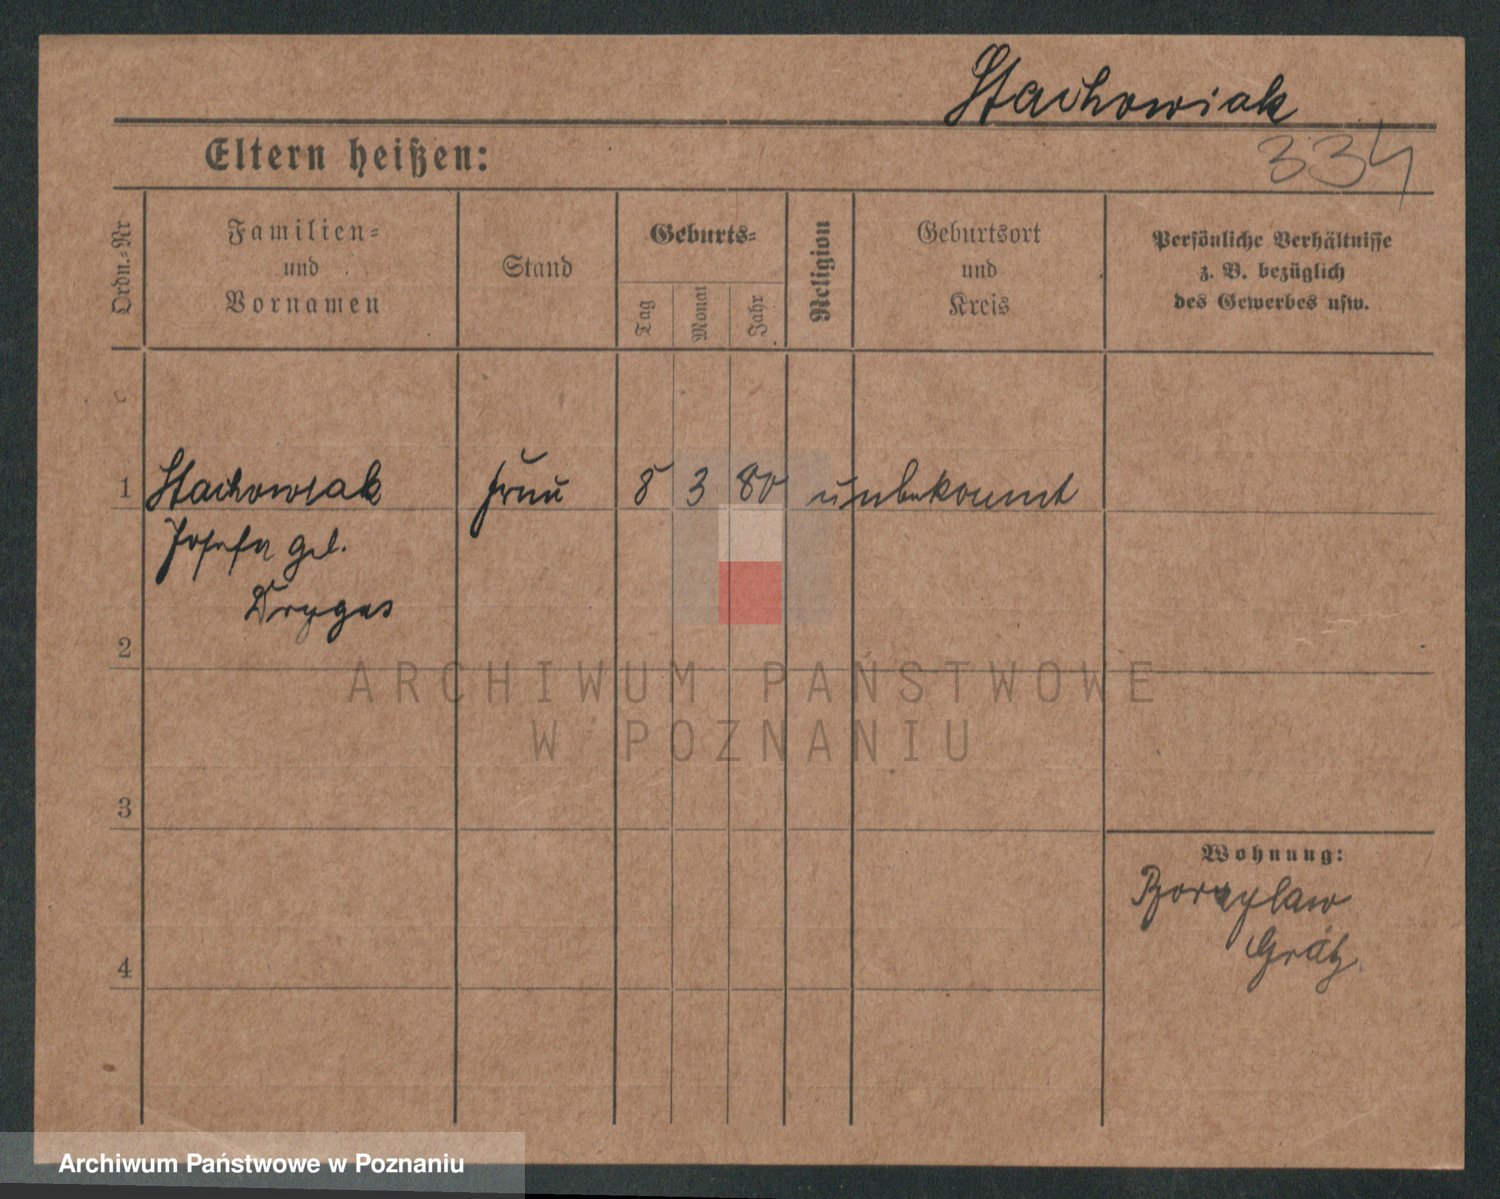 Stachowiak
Eltern heißen:
334
Ordn.-Nr
Familien-
und
Vornamen
Stand
Geburts-
Tag
Monat
Jahr
Religion
Geburtsort
und
Kreis
Persönliche Verhältnisse
z. B. bezüglich
des Gewerbes usw.
1 Stachowiak Frau 8 3 80 unbekannt
Josefa geb.
Drygas
2
ARCHIWUM PAŃSTWOWE
W POZNANIU
3
Wohnung:
Grätz
4
Archiwum Państwowe w Poznaniu